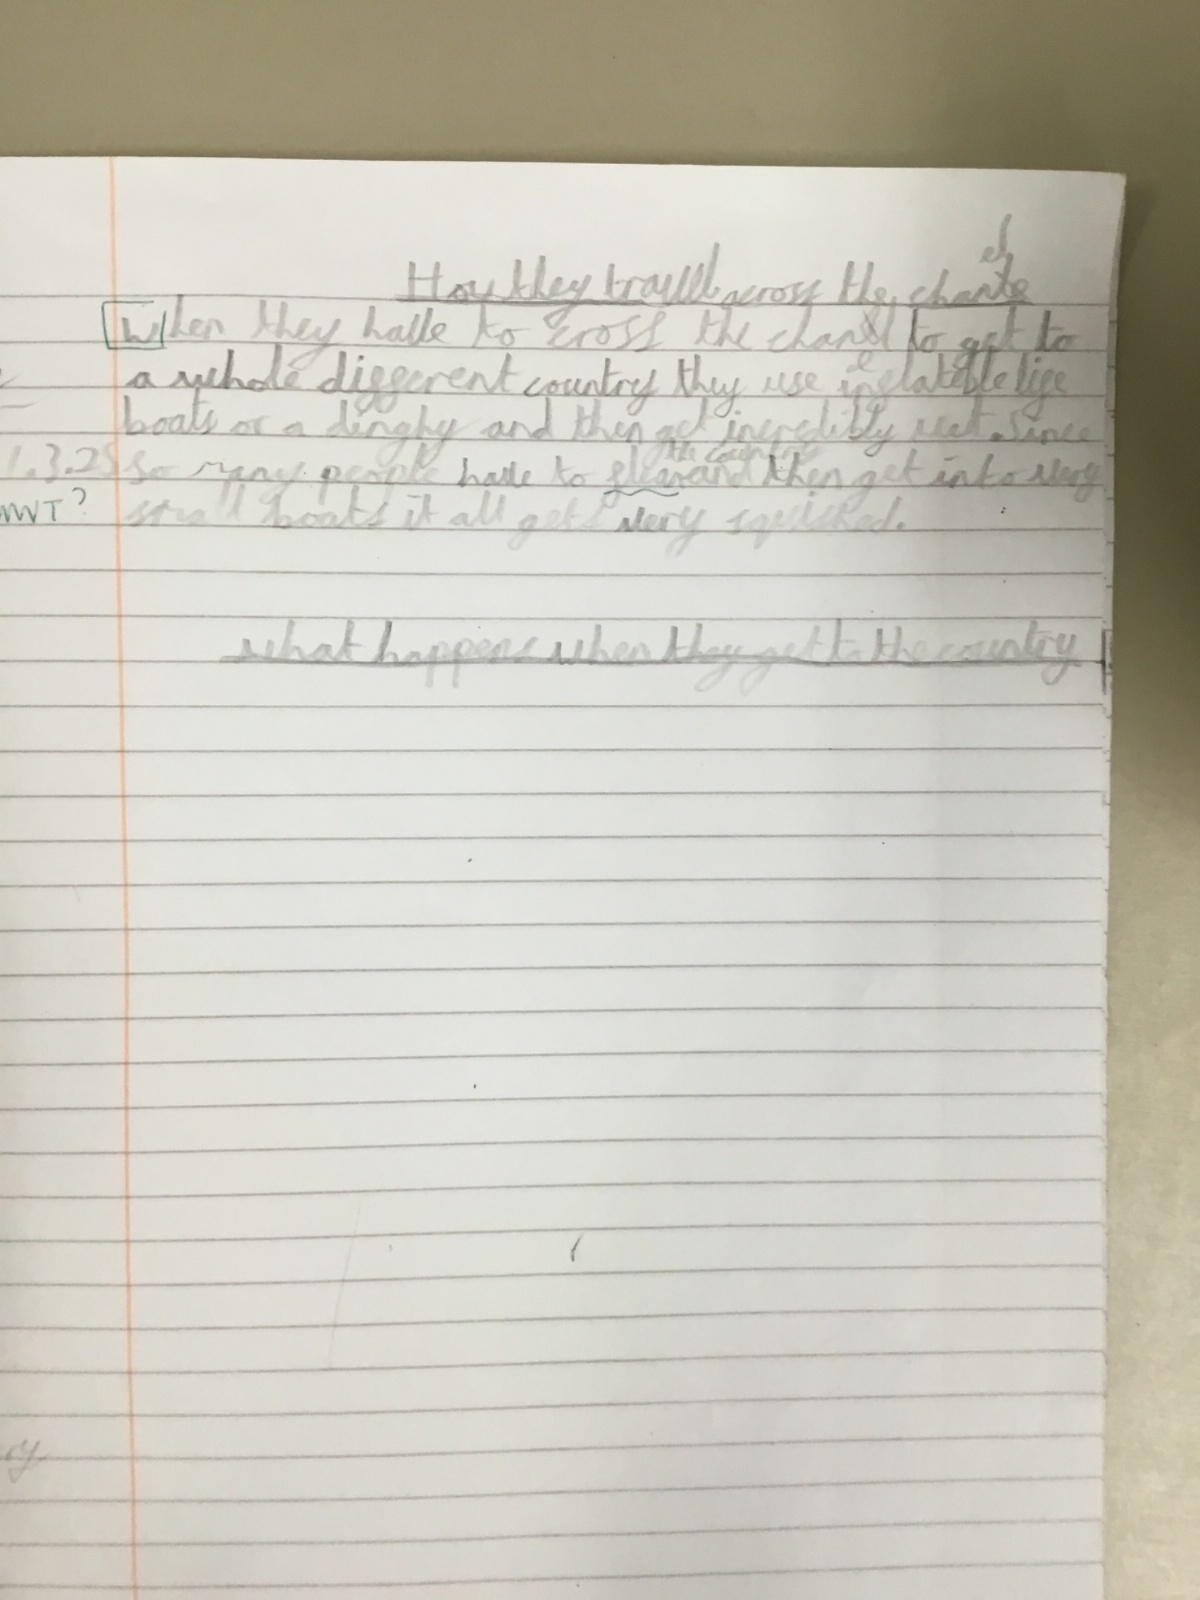 How they travel across the chanel
When they have to cross the chanel to get to
a whole different country they use inflateble life
boats or a dinghy and then get incredibly wet. Since
1.3.25 so many people have to flee the country and then get into very
MWT? small boats it all gets very squished.
what happens when they get to the country